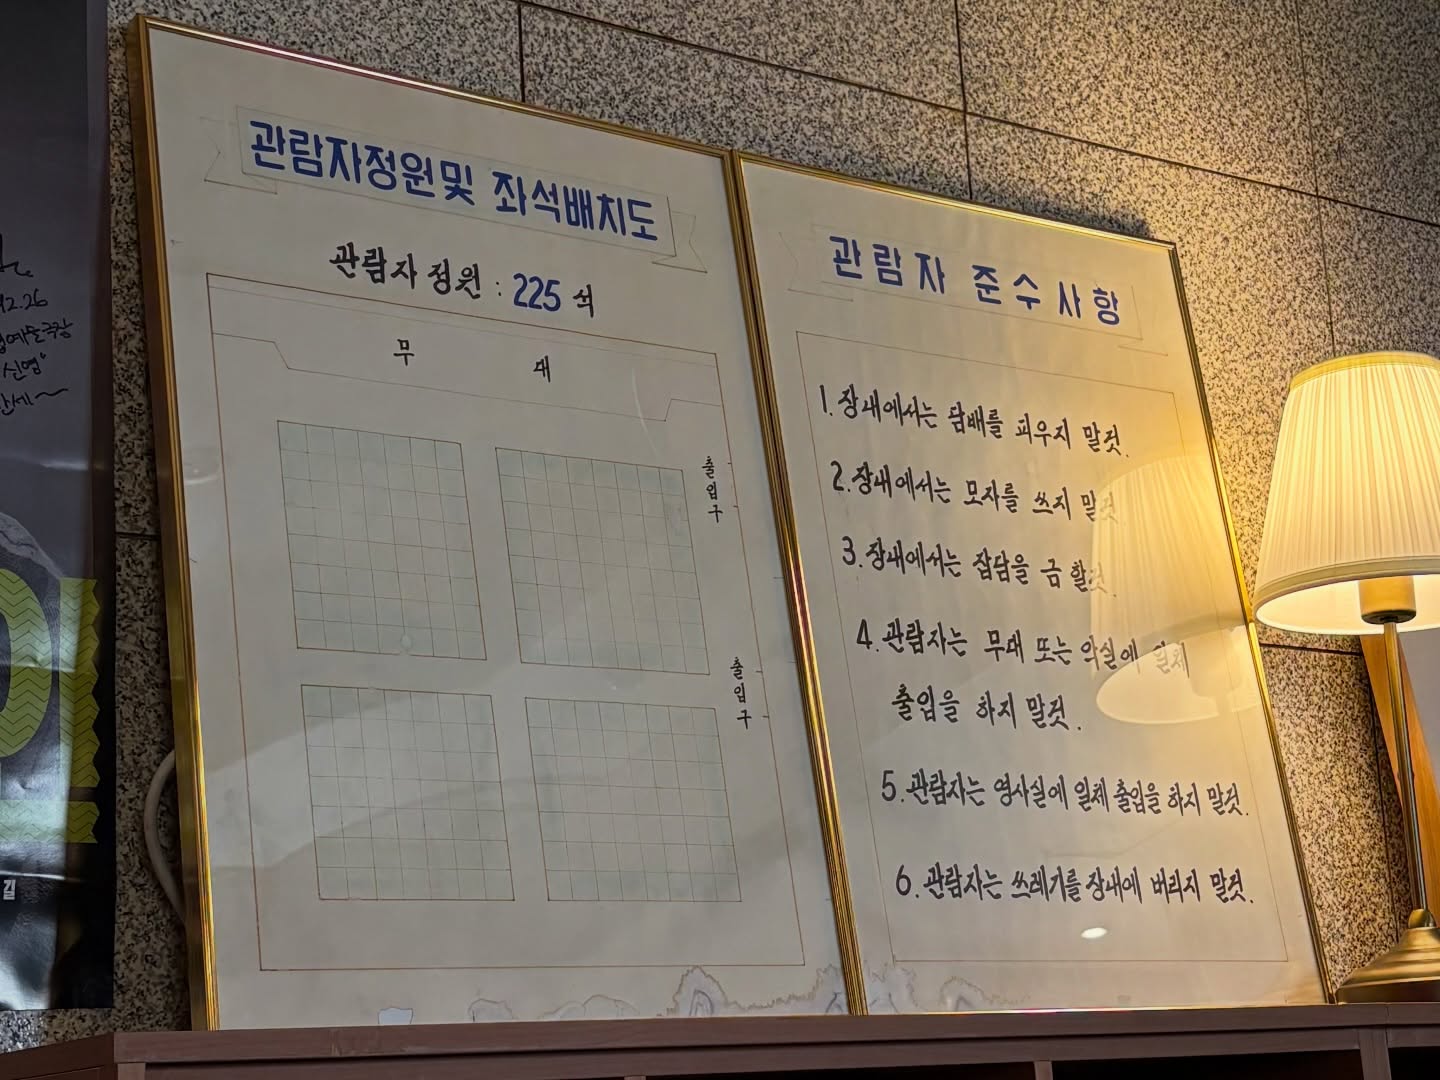 관람자정원및 좌석배치도
관람자 정원 : 225 석
무 대
출입구
출입구
관람자 준수사항
1. 장내에서는 담배를 피우지 말것.
2. 장내에서는 모자를 쓰지 말것.
3. 장내에서는 잡담을 금 할것.
4. 관람자는 무대 또는 악실에 일체
출입을 하지 말것.
5. 관람자는 영사실에 일체 출입을 하지 말것.
6. 관람자는 쓰레기를 장내에 버리지 말것.
2.26
길